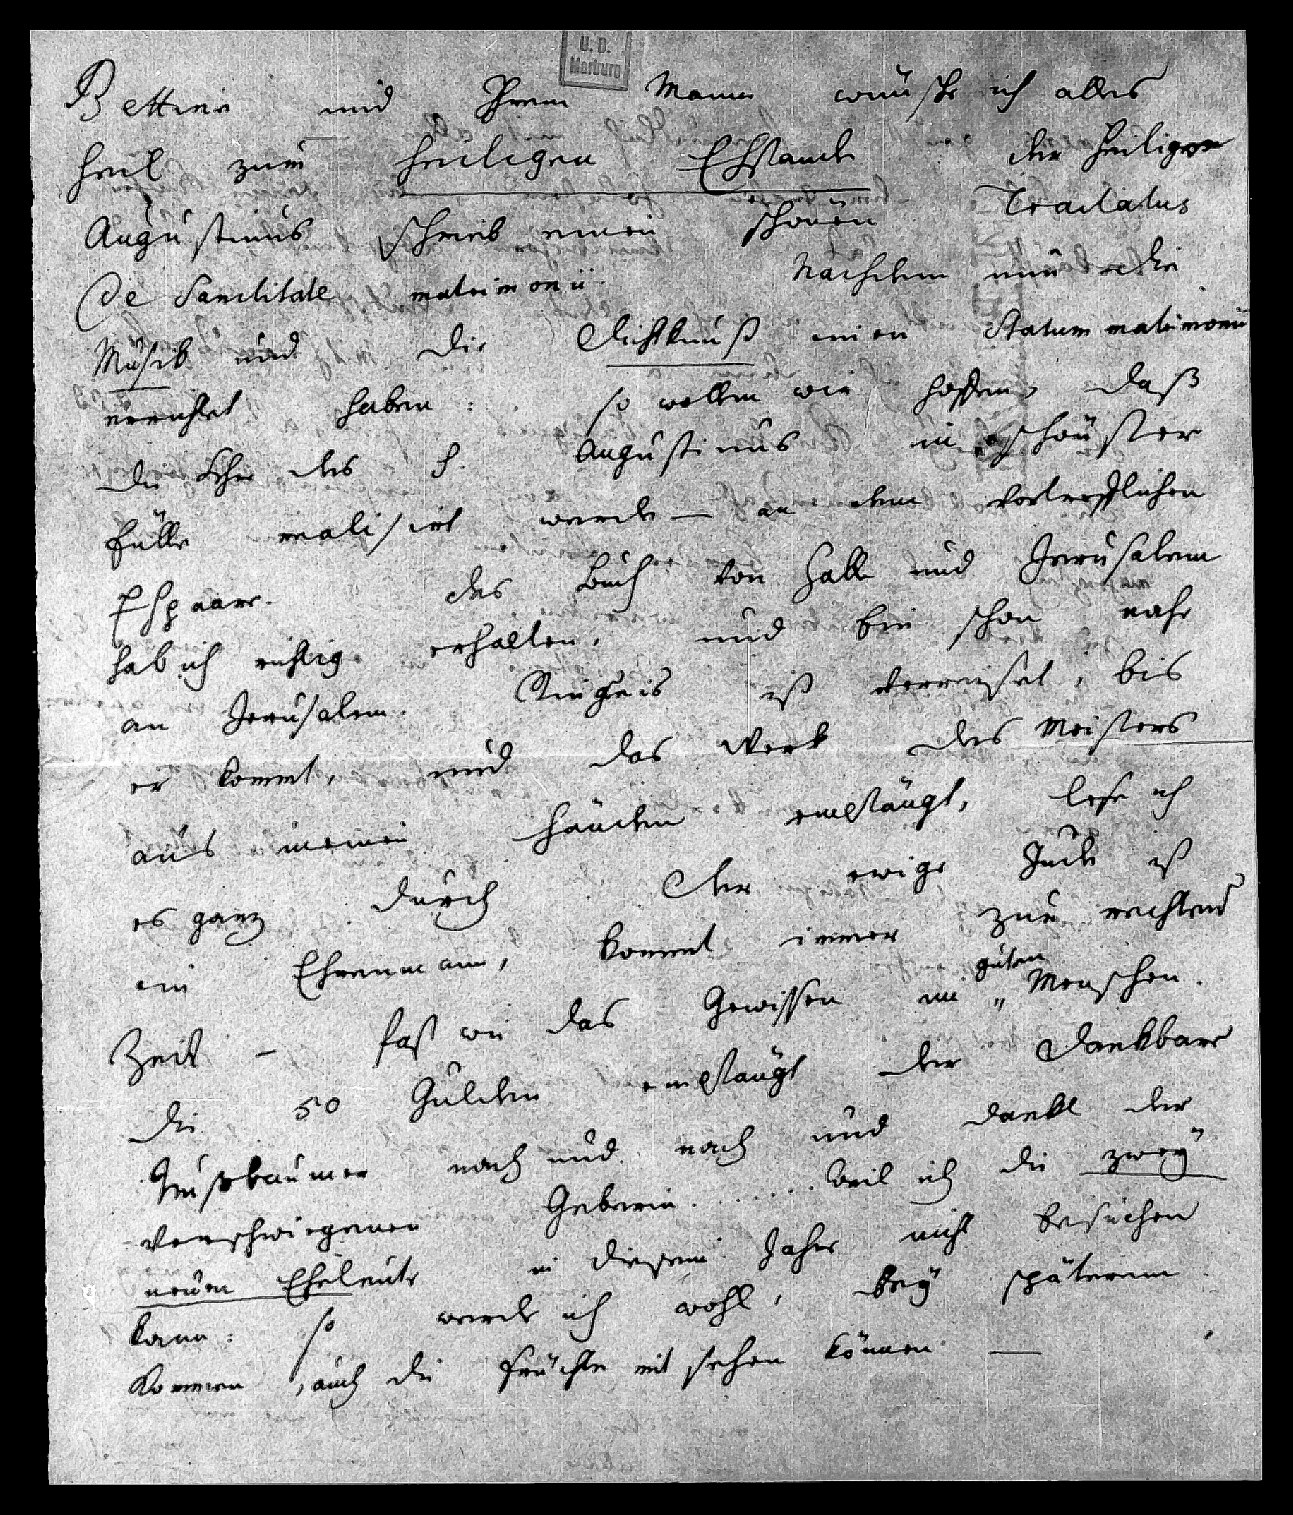 U. B.
Marburg
Bettine und Ihrem Mann wünsche ich alles
Heil zum heiligen Ehstande der Heilige
Augustinus schrieb einen schönen Tractatus
De Sanctitate matrimonii. Nachdem nun die
Musik und die Dichtkunst einen Statum matrimonii
errichtet haben: so wollen wir hoffen, daß
die Lehre des h. Augustinus in schönster
Fülle realisirt werde – an dem vortrefflichen
Ehpaare. Das Buch von Halle und Jerusalem
hab ich richtig erhalten, und bin schon nahe
an Jerusalem. Ringseis ist verreiset, bis
er kommt, und das Werk des Meisters
aus meinen Händen empfängt, lese ich
es ganz durch. Der ewige Jude ist
ein Ehrenmann, kommt immer zur rechten
Zeit – fast wie das Gewissen im guten Menschen.
Die 50 Gulden empfängt der dankbare
Nußbaumer nach und nach und dankt der
verschwiegenen Geberin. ...... Weil ich die zwey
neuen Eheleute in diesem Jahre nicht besuchen
kann: so werde ich wohl, bey späterem
Kommen, auch die Früchte mit sehen können. —